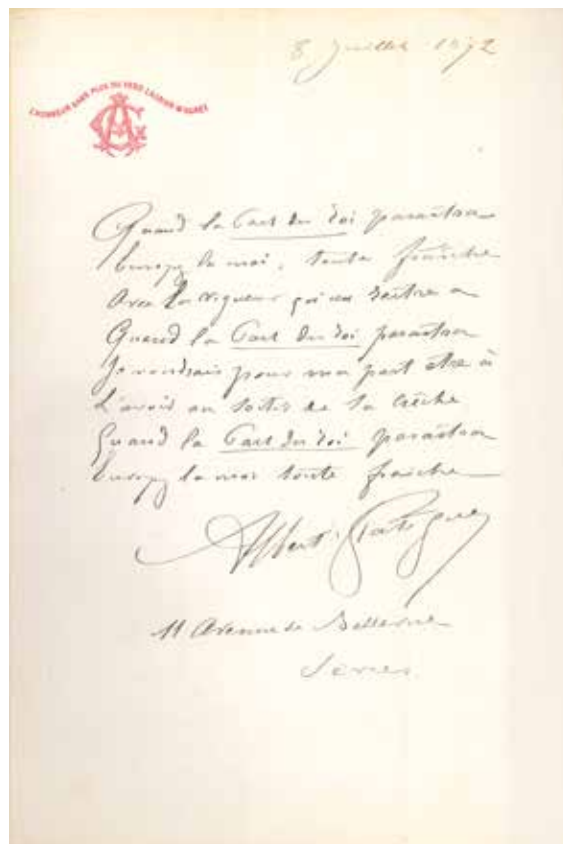 8 Juillet 1872
L'HONNEUR SANS PLUS DU VERD LAURIER M'AGREE
AG
Quand la Part du Roi paraîtra
Envoyez la moi, toute fraîche
Avec la vigueur qui
Quand la Part du Roi paraîtra
Je voudrais pour ma part être à
L'avoir au sortir de la crèche
Quand la Part du Roi paraîtra
Envoyez la moi toute fraîche
Albert Glatigny
11 Avenue de Bellevue
Sèvres